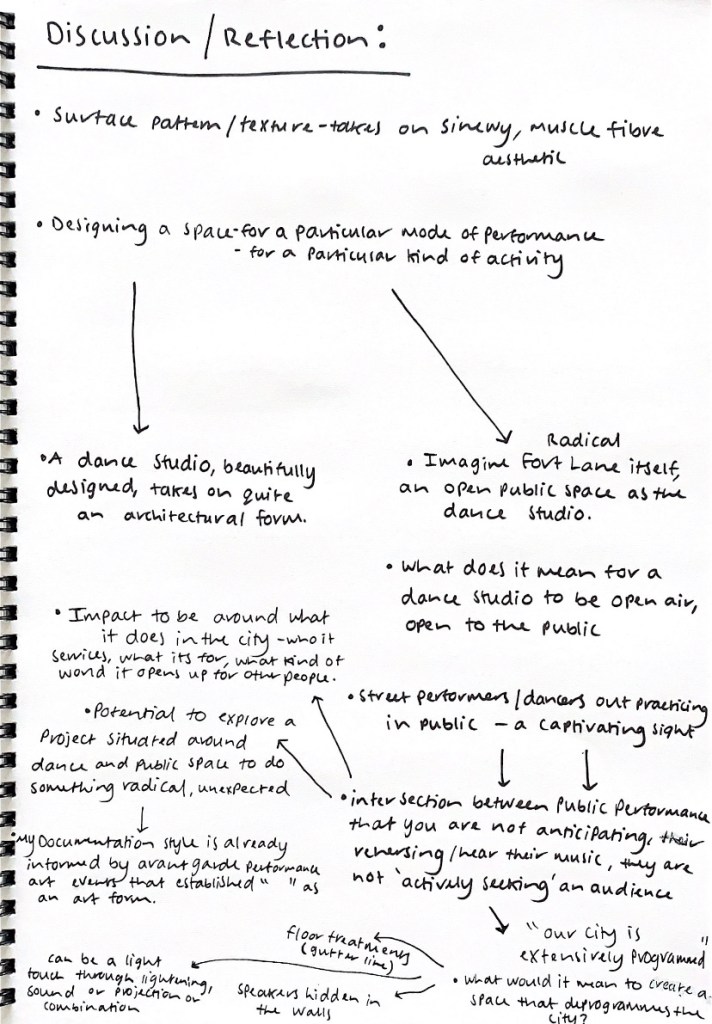 Discussion / Reflection:
• Surface pattern/texture - takes on sinewy, muscle fibre
aesthetic
• Designing a space - for a particular mode of performance
- for a particular kind of activity
• A dance studio, beautifully
designed, takes on quite
an architectural form.
Radical
• Imagine Fort Lane itself,
an open public space as the
dance studio.
• what does it mean for a
dance studio to be open air,
open to the public
• Impact to be around what
it does in the city - who it
services, what its for, what kind of
world it opens up for other people.
• Street performers/dancers out practicing
in public - a captivating sight
• Potential to explore a
project situated around
dance and public space to do
something radical, unexpected
• intersection between public performance
that you are not anticipating, their
rehersing/hear their music, they are
not 'actively seeking' an audience
• My Documentation style is already
informed by avant garde performance
art events that established " " as
an art form.
"our city is
extensively programmed"
• what would it mean to create a
space that deprogrammes the
city?
floor treatments
(gutter line)
can be a light
touch through lightening,
sound or projection or
combination
speakers hidden in
the walls